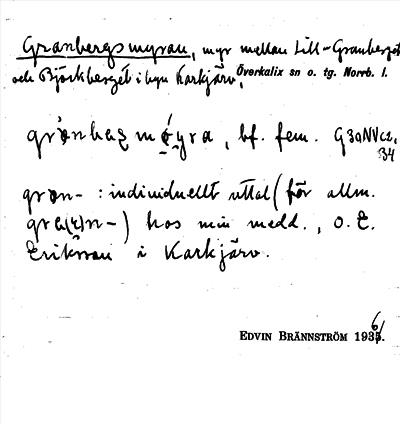 Granbergsmyran, myr mellan Lill-Granberget
och Björkberget i byn Karkjärv, Överkalix sn o. tg. Norrb. l.
bf. fem.
gran- : individuellt uttal (för allm.
hos min medd., O. E.
Eriksson i Karkjärv.
EDVIN BRÄNNSTRÖM 1936.